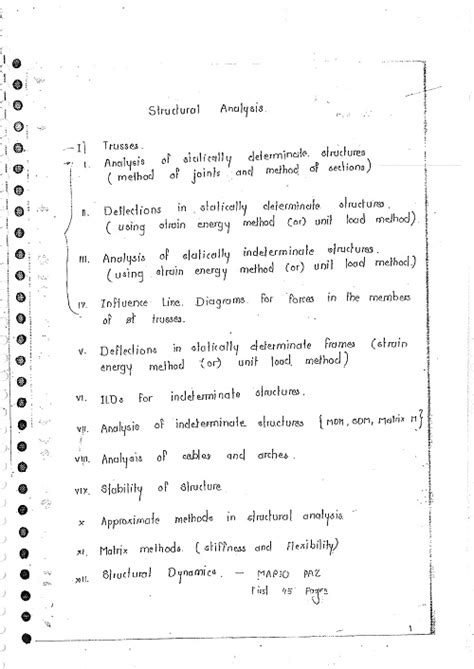 Structural Analysis.
I] Trusses.
I. Analysis of statically determinate structures
( method of joints and method of sections)
II. Deflections in statically determinate structures.
( using strain energy method (or) unit load method).
III. Analysis of statically indeterminate structures.
( using strain energy method (or) unit load method.)
IV. Influence Line Diagrams. for forces in the members
of trusses.
V. Deflections in statically determinate frames (strain
energy method (or) unit load method)
VI. ILDs for indeterminate structures.
VII. Analysis of indeterminate structures { MDM, SDM, Matrix M}
VIII. Analysis of cables and arches.
VIX. Stability of Structure
X Approximate methods in structural analysis
XI. Matrix methods. ( stiffness and flexibility)
XII. Structural Dynamics. – MARIO PAZ
First 45 Pages
1